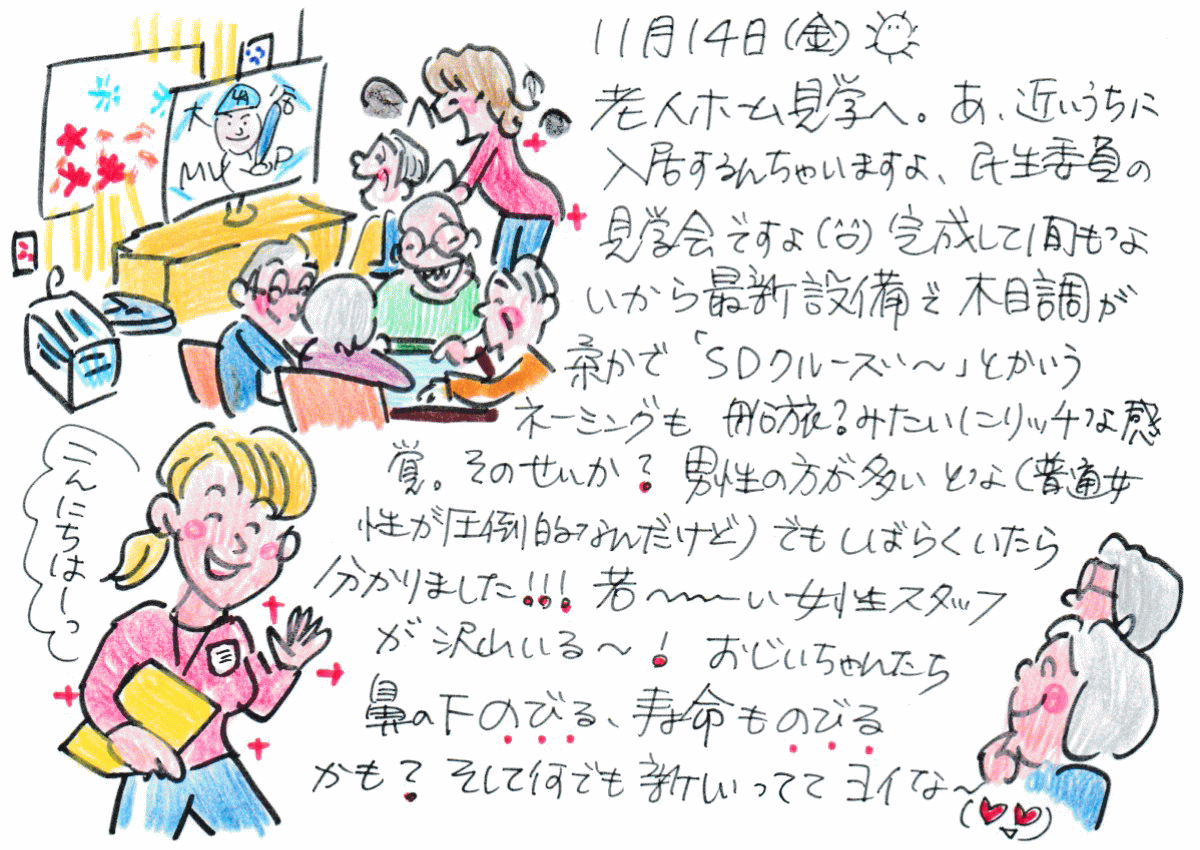 11月14日(金)
老人ホーム見学へ。あ、近いうちに
入居するんちゃいますよ、民生委員の
見学会ですよ(^o^)完成して1月もつよ
いから最新設備で木目調が
奈かで「SDクルーズぃ〜」とかいう
ネーミングも船旅?みたいにリッチな感
覚。そのせいか?男性の方が多いとな(普通女
性が圧倒的なんだけど)でもしばらくいたら
分かりました!!!若〜〜〜い女性スタッフ
が沢山いる〜!おじいちゃんたち
鼻の下のびる、寿命ものびる
かも?そして何でも新しいってヨイな〜
大谷
LA
MVP
こんにちはーっ